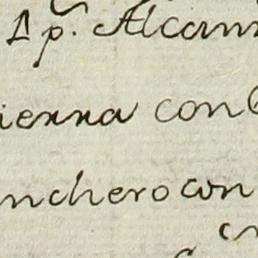 1 p. Alcam
ienna con
nchero con